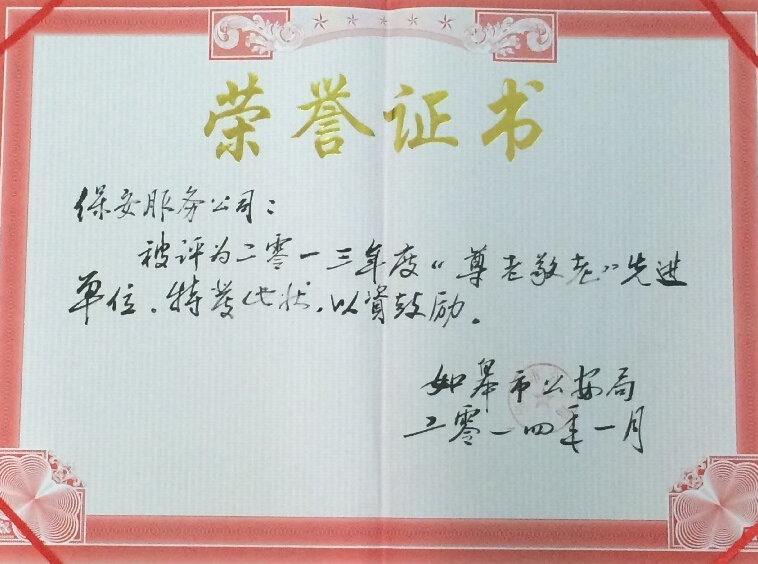 荣誉证书
保安服务公司：
被评为二零一三年度“尊老敬老”先进
单位，特发此状，以资鼓励。
如皋市公安局
二零一四年一月